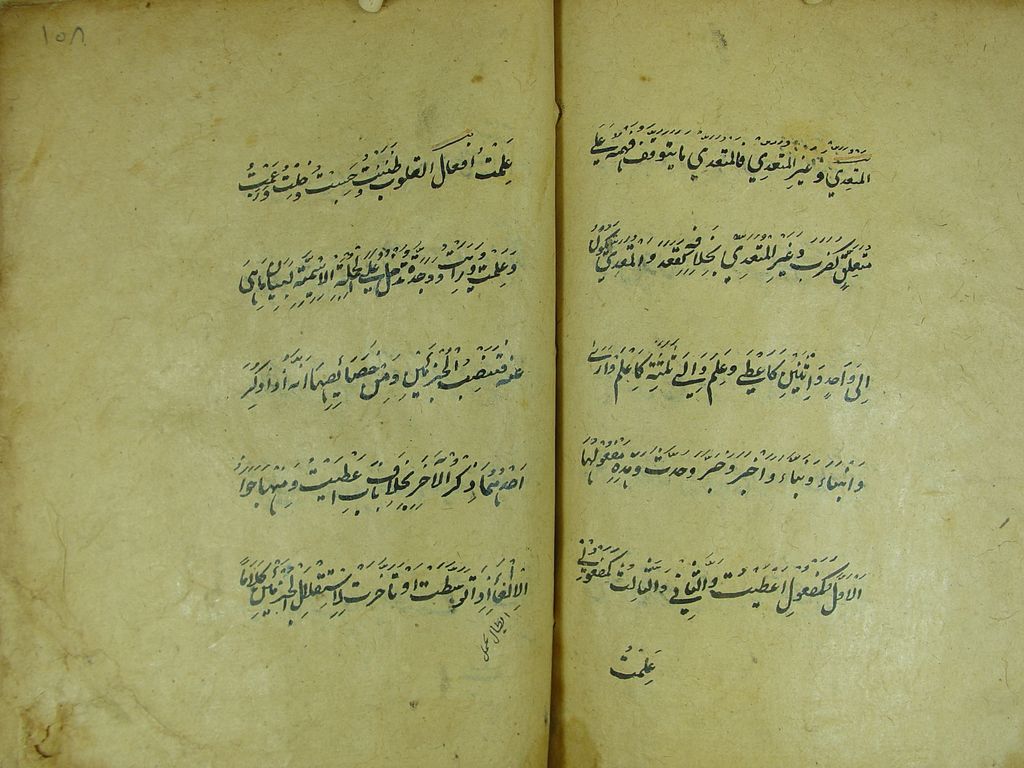 المتعدي وغير المتعدي فالمتعدي ما يتوقف فهمه على
متعلق كضرب وغير المتعدي بخلافه كقعد والمتعدي يكون
الى واحد واثنين كاعطى وعلم والى ثلثة كاعلم وارى
وانباء ونباء واخبر وخبر وحدث وهذه مفعولها
الاول كمفعول اعطيت والثاني والثالث كمفعولي
علمت
١٥٨
علمت افعال القلوب ظننت وحسبت وخلت وزعمت
وعلمت ورايت ووجدت تدخل على الجملة الاسمية لبيان ما هي
عنه فتنصب الجزئين ومن خصائصها انه اذا ذكر
احدهما ذكر الآخر بخلاف باب اعطيت ومنها جواز
الالغاء اذا توسطت او تاخرت لاستقلال الجزئين كلاما
ابطال عمل